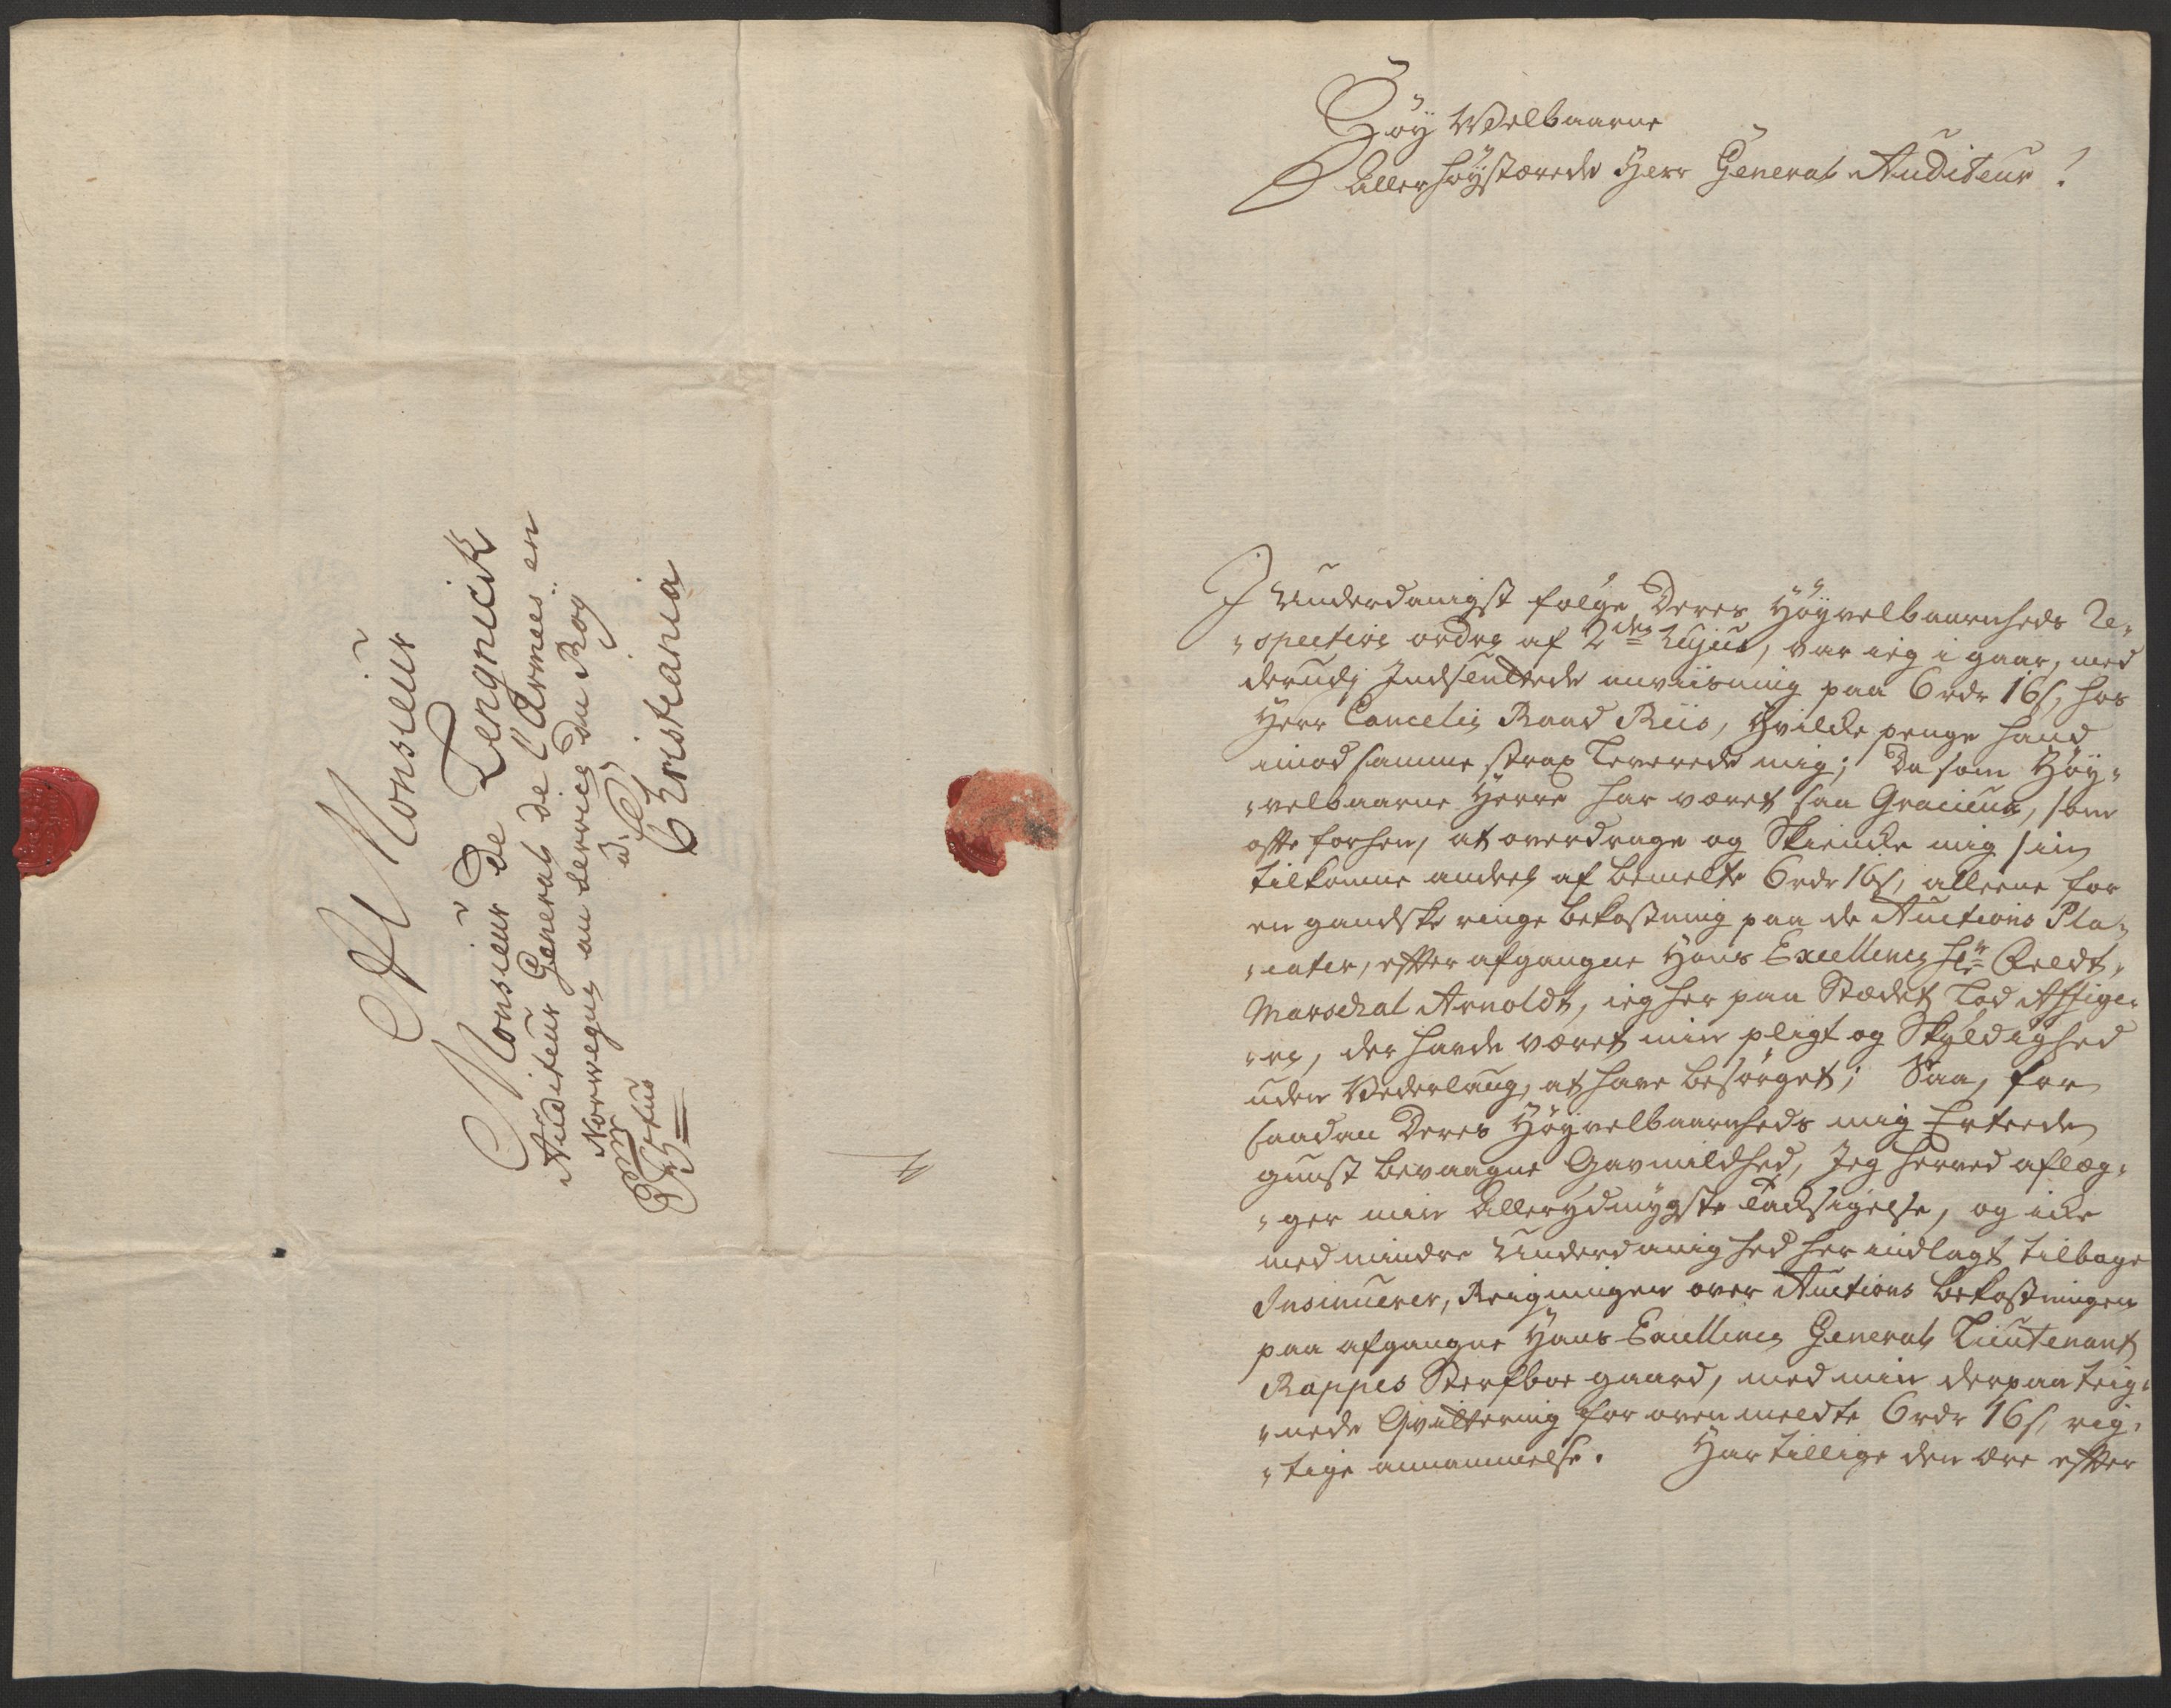 A Monsieur
Monsieur de Tengnick
Auditeur General de l'Armée en
Norwegue au service du Roy
à
Christiania
Høy Welbaarne
Allerhøystærede Herr General Auditeur!
I Underdanigst følge Deres Høyvelbaarnheds Re-
-spective ordre af 2den hujus, var ieg i gaar, med
derudj Indsluttede anviisning paa 6 rdr 16 s, hos
Herr Cancelie Raad Riis, hvilke penge hand
imod samme strax leverede mig; Da som Høy-
-velbaarne Herre har været saa Gracieux, som
offte forhen, at overdrage og Skiencke mig sin
tilkomne andeel af bemelte 6 rdr 16 s, alleene for
en gandske ringe bekostning paa de Auctions Pla-
-cater, efter afgangne Hans Excellence Hr Feldt-
Marschal Arnoldt, ieg her paa Stædet lod Affige-
-re, der havde været min pligt og Skyldighed
uden Vederlaug, at have besørget; Saa, for
saadan Deres Høyvelbaarnheds mig Erteede
gunst bevaagne Gavmildhed, Jeg herved aflæg-
-ger min Allerydmygste Tacksigelse, og icke
med mindre Underdanighed her indlagt tilbage
Insinuerer, Reigningen over Auctions bekostningen
paa afgangne Hans Excellence General Lieutenant
Rappes Sterfboe gaard, med min derpaa teig-
-nede Qvittering for ovenmeldte 6 rdr 16 s, rig-
-tige annammelse. Har tillige den ære efter